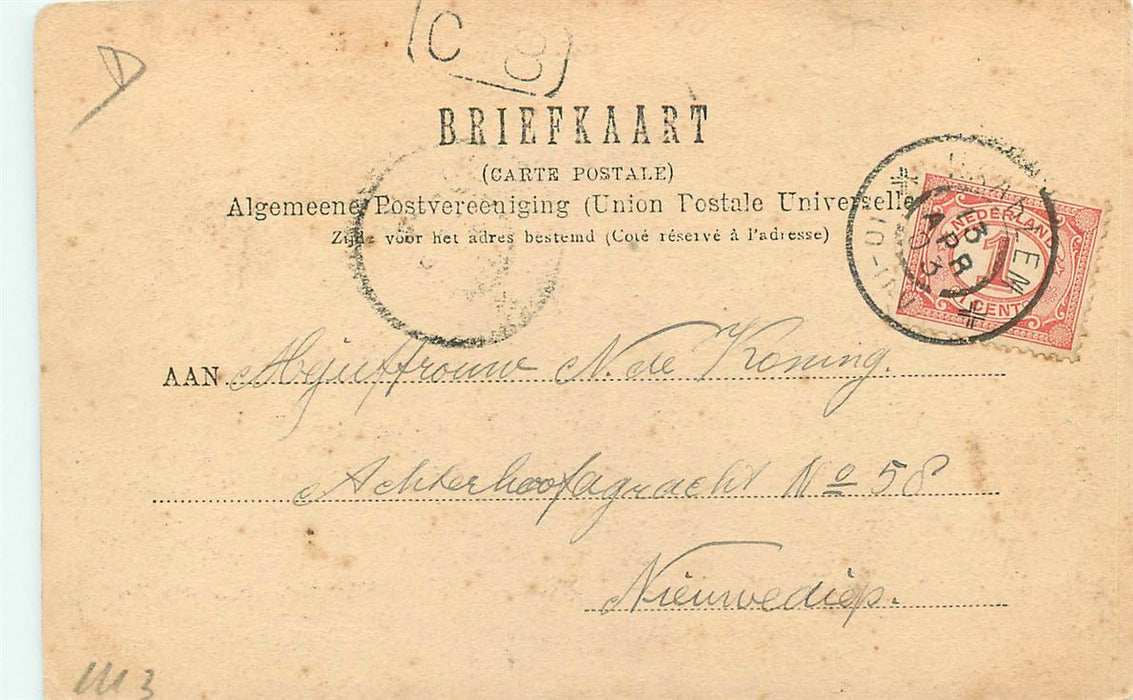 C 8
BRIEFKAART
(CARTE POSTALE)
Algemeene Postvereeniging (Union Postale Universelle
Zijde voor het adres bestemd (Coté réservé à l'adresse)
NEDERLAND
1
CENT
13
APR
03
AAN Mejuffrouw N. de Koning.
Achterhoofdgracht No 58
Nieuwediep.